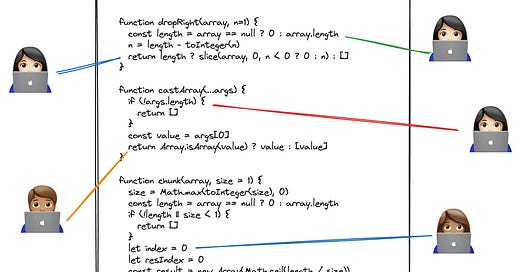 function dropRight(array, n=1) {
const length = array == null ? 0 : array.length
n = length - toInteger(n)
return length ? slice(array, 0, n < 0 ? 0 : n) : []
}
function castArray(...args) {
if (!args.length) {
return []
}
const value = args[0]
return Array.isArray(value) ? value : [value]
}
function chunk(array, size = 1) {
size = Math.max(toInteger(size), 0)
const length = array == null ? 0 : array.length
if (!length || size < 1) {
return []
}
let index = 0
let resIndex = 0
const result = new Array(Math.ceil(length / size))